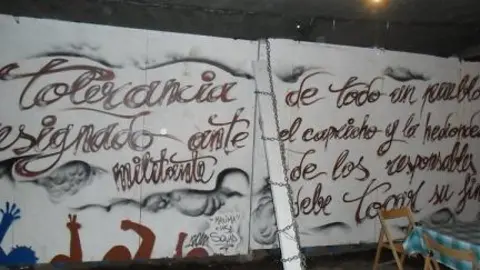 tolerancia
esignado ante
militante
de todo un pueblo
el capricho y la hedonde
de los responsables
debe tocar su fin